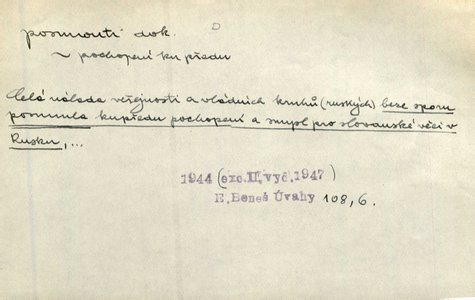 posunouti dok. D
~ pochopení ku předu
Celá nálada veřejnosti a vládních kruhů (ruských) beze sporu
posunula kupředu pochopení a smysl pro slovanské věci v
Rusku, ...
1944 (exc.II.vyd.1947)
E.Beneš Úvahy 108,6.